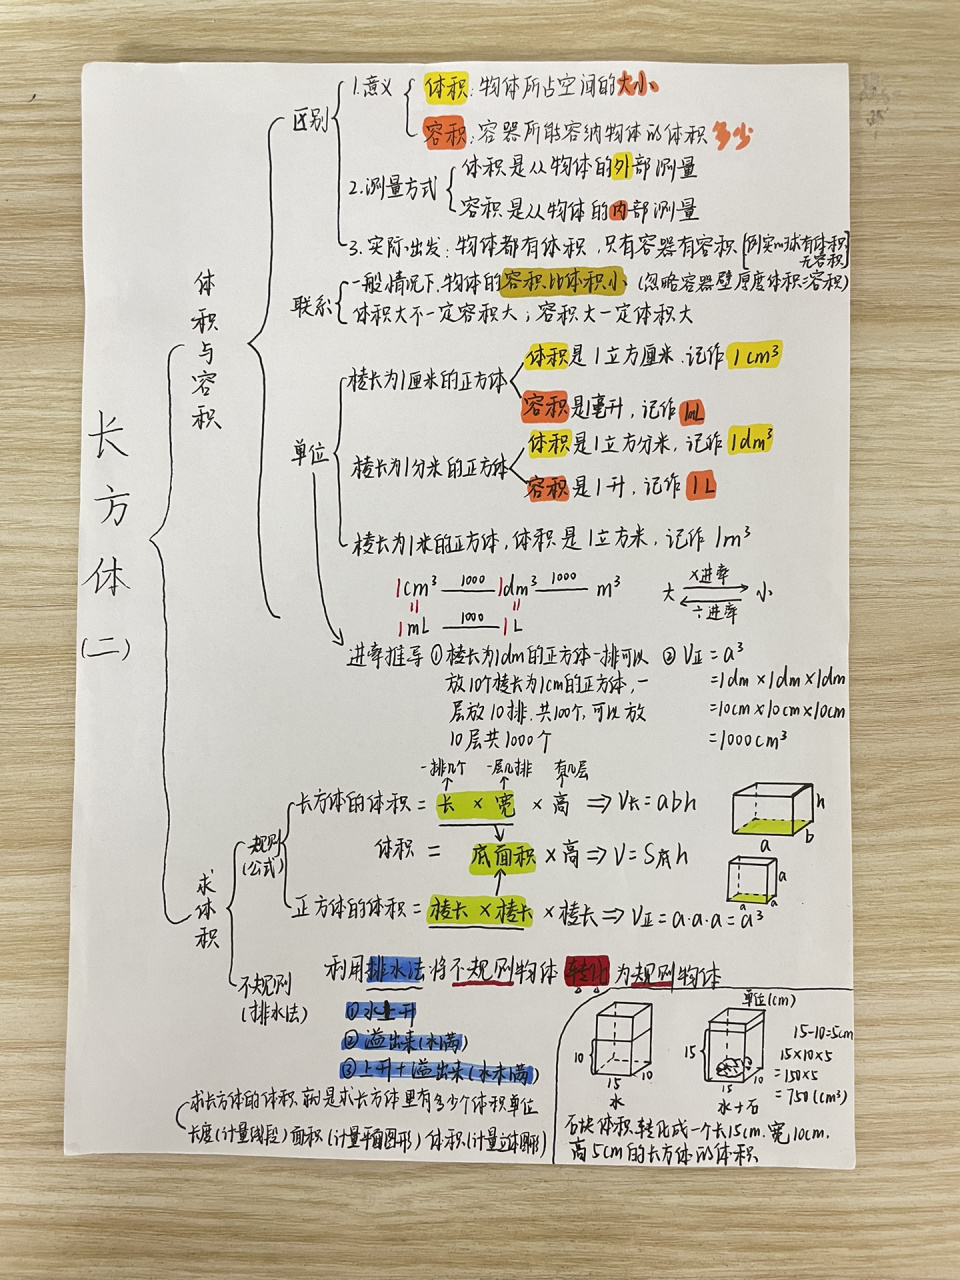 长方体
(二)
体积与容积
区别
1.意义
体积:物体所占空间的大小
容积:容器所能容纳物体的体积 多少
2.测量方式
体积是从物体的外部测量
容积是从物体的内部测量
3.实际出发:物体都有体积,只有容器有容积[例实心球有体积
无容积]
联系
一般情况下,物体的容积比体积小(忽略容器壁厚度体积=容积)
体积大不一定容积大;容积大一定体积大
单位
棱长为1厘米的正方体
体积是1立方厘米.记作 1cm³
容积是1毫升,记作 1mL
棱长为1分米的正方体
体积是1立方分米,记作 1dm³
容积是1升,记作 1L
棱长为1米的正方体,体积是1立方米,记作 1m³
1cm³ 1000 1dm³ 1000 m³
= =
1mL 1000 1L
大 ×进率 小
÷进率
进率推导 ①棱长为1dm的正方体一排可以
放10个棱长为1cm的正方体,一
层放10排,共100个,可以放
10层共1000个
② V正=a³
=1dm×1dm×1dm
=10cm×10cm×10cm
=1000cm³
求体积
规则
(公式)
一排几个 一层几排 有几层
长方体的体积=长×宽×高⇒V长=abh
体积=底面积×高⇒V=S底h
正方体的体积=棱长×棱长×棱长⇒V正=a·a·a=a³
h
b
a
a
a
a
不规则
(排水法)
利用排水法将不规则物体转化为规则物体
①水上升
②溢出来(水满)
③上升+溢出来(水未满)
求长方体的体积,就是求长方体里有多少个体积单位
长度(计量线段)面积(计量平面图形)体积(计量立体图形)
单位(cm)
10
15
10
水
15
15
10
水+石
15-10=5cm
15×10×5
=150×5
=750(cm³)
石块体积转化成一个长15cm.宽10cm.
高5cm的长方体的体积.